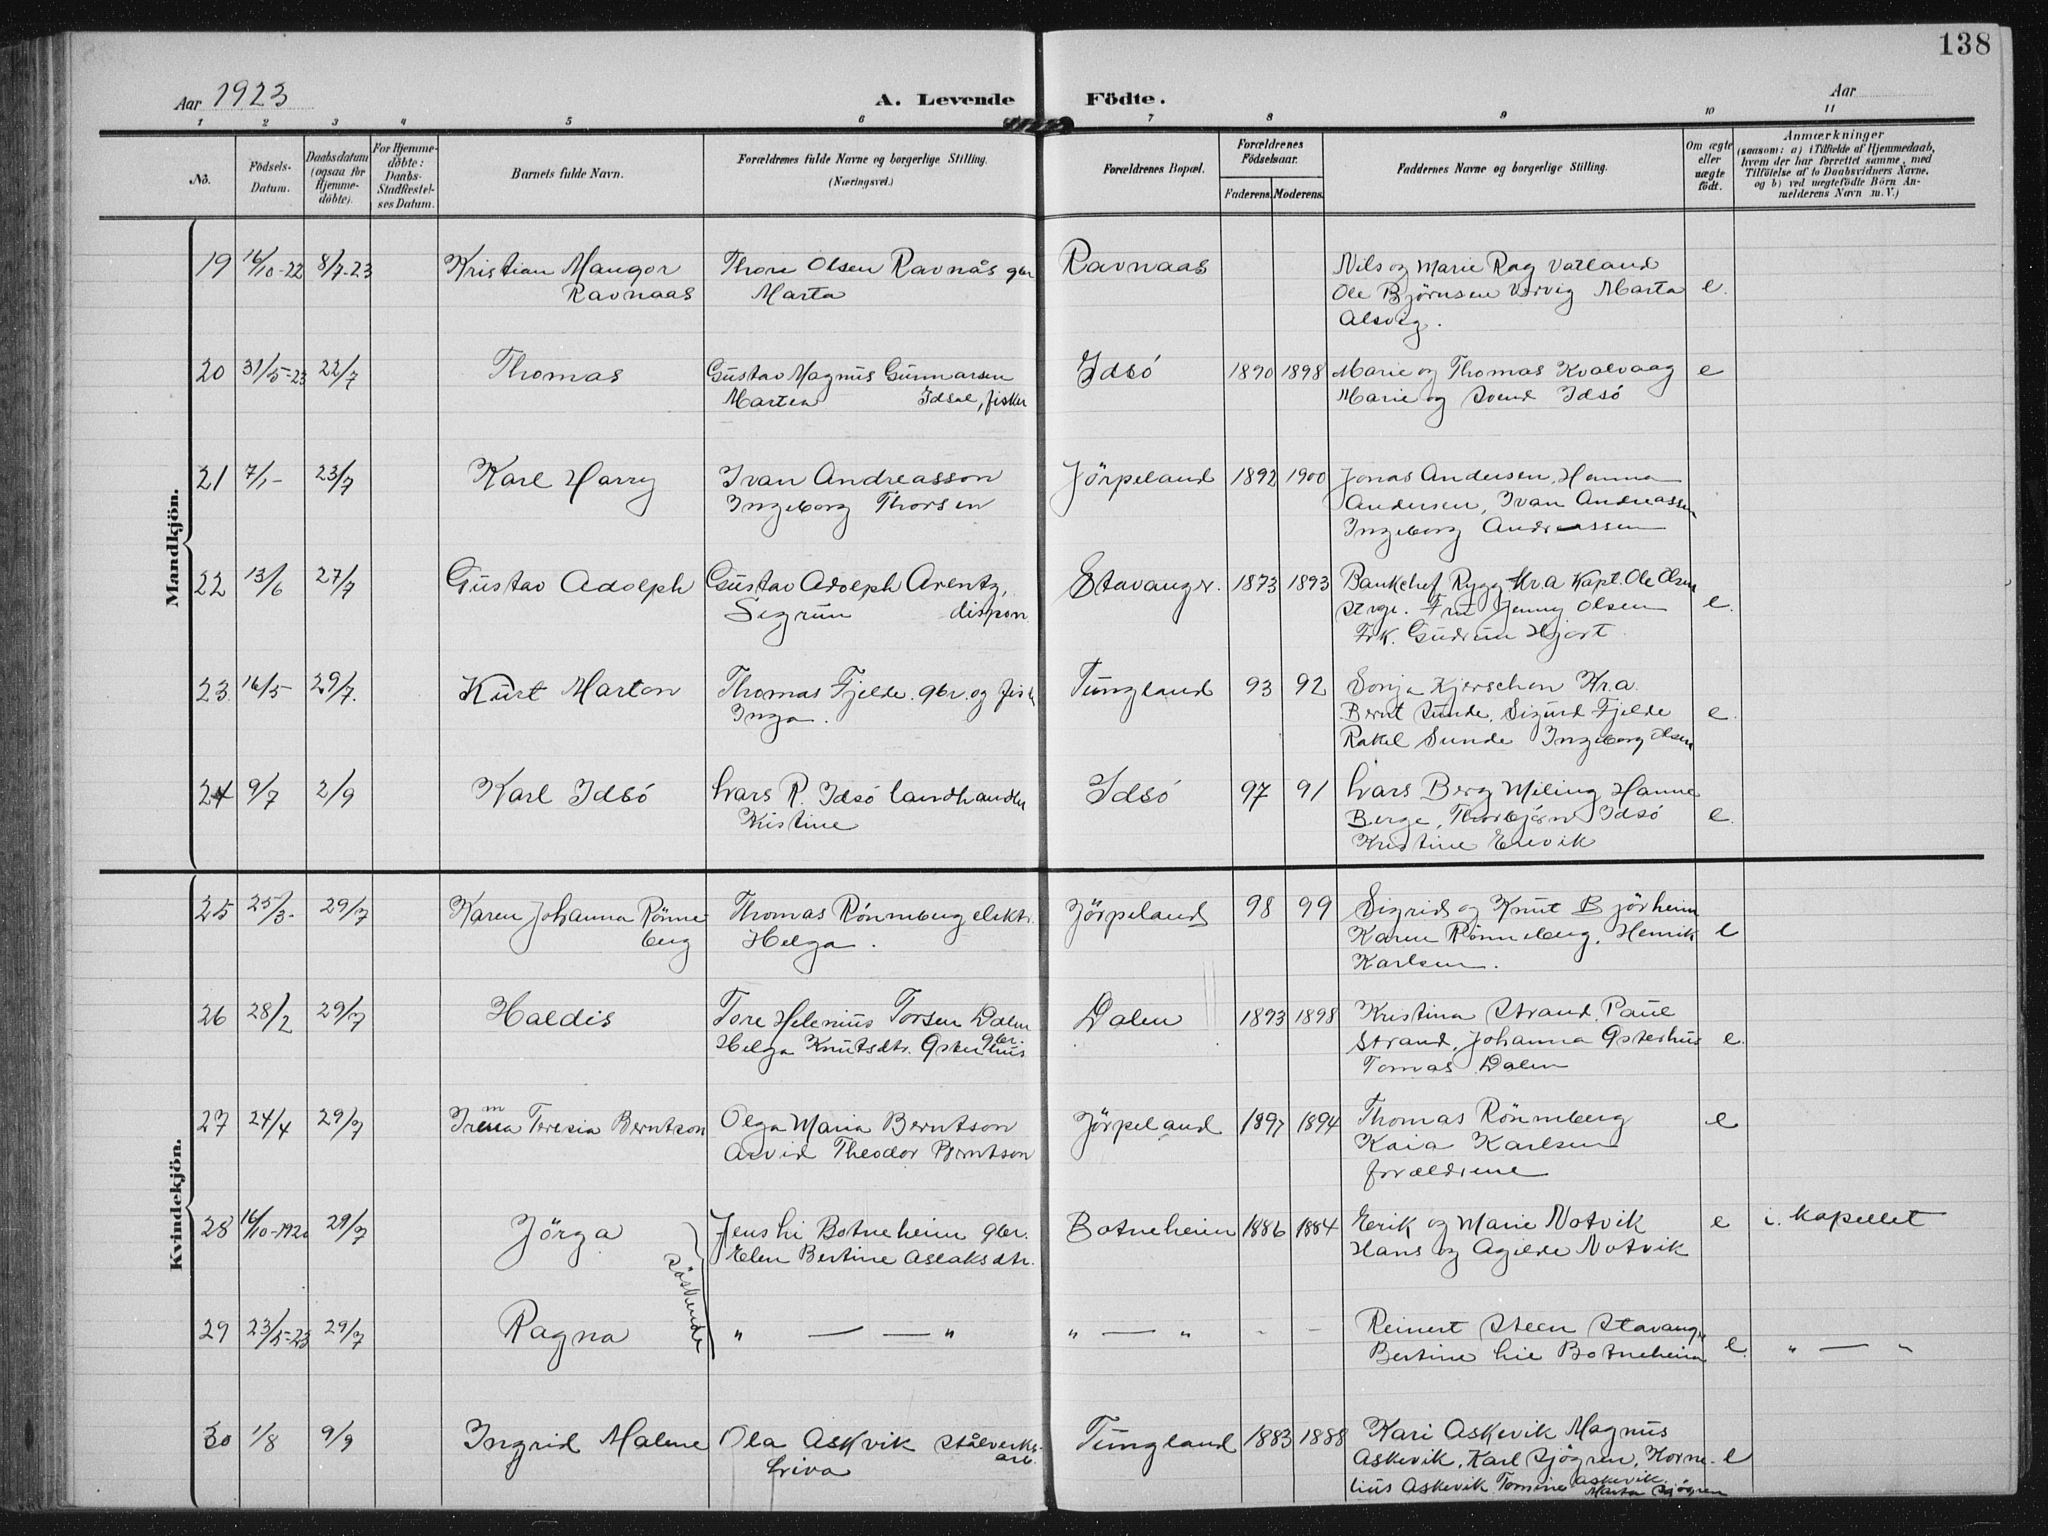 138
Aar 1923
A. Levende Födte.
Aar
1 2 3 4 5 6 7 8 9 10 11
No.
Födsels-Datum.
Daabsdatum (ogsaa for Hjemme-döbte).
For Hjemme-döbte: Daabs-Stadfæstel-ses Datum.
Barnets fulde Navn.
Forældrenes fulde Navne og borgerlige Stilling. (Næringsvei.)
Forældrenes Bopæl.
Forældrenes Födselsaar.
Faderens. Moderens.
Faddernes Navne og borgerlige Stilling.
Om ægte eller uægte födt.
Anmærkninger (saasom: a) i Tilfælde af Hjemmedaab, hvem der har forrettet samme, med Tilföielse af to Daabsvidners Navne. og b) ved uægtefödte Börn An-melderens Navn m. V.)
Mandkjön.
19 16/10-22 8/7-23 Kristian Mangor Thore Olsen Ravnås gbr Ravnaas Nils og Marie Rag Vatland
Ravnaas Marta Ole Björnsen Vervig Marta e.
Alsvig.
20 31/5-23 22/7 Thomas Gustav Magnus Gunnarsen Idsö 1890 1898 Marie og Thomas Kvalvaag e
Marten Idsal, fisker Marie og Svend Idsö
21 7/1- 23/7 Karl Harry Ivan Andreasson Jörpeland 1892 1900 Jonas Andersen, Hanna
Ingeborg Thorsen Andersen, Ivan Andreassen
Ingeborg Andreassen
22 13/6 27/7 Gustav Adolph Gustav Adolph Arentz, Stavanger. 1873 1893 Bankchef Rygg Kr.a Kapt. Ole Olsen
Sigrun dispon. Stvgr. Fru Jenny Olsen e.
Frk. Gudrun Hjort.
23. 16/5- 29/7. Kurt Marton Thomas Fjelde. gbr. og fisk Tungland 93 92 Sonja Kjerschon Kr.a.
Inga. Bernt Sunde, Sigurd Fjelde e.
Rakel Sunde Ingeborg Olsen
24 9/7 2/9 Karl Idsö Lars R. Idsö landhandler Idsö 97 91 Lars Berg Meling Hanne
Kistine Berge, Thorbjörn Idsö e.
Kristine Erevik
Kvindekjön.
25 25/3- 29/7 Karen Johanna Rönne Thomas Rönneberg elektr. Jörpeland 98 99 Sigrid og Knut Björheim
berg Helga. Karen Rönneberg, Henrik e
Karlsen.
26 28/2 29/7 Haldis Tore Helenius Torsen Dalen Dalen 1893 1898 Kristina Strand, Paul
gbr.
Helga Knutsdtr. Østerhus Strand, Johanna Østerhus e.
Tomas Dalen
27 24/4 29/7 Irma Teresia Berntson Olga Maria Berntson Jörpeland 1897 1894 Thomas Rönneberg e
Arvid Theodor Berntson Kaia Karlsen
forældrene
28 16/10-1920 29/7 Jörga Jens Li Botneheim gbr. Botneheim 1886 1884 Erik og Marie Notvik e i. kapellet
Elen Bertine Aslaksdtr. Hans og Agilde Notvik
Söskende
29 23/5-23 29/7 Ragna " — — " " — " - - Reinert Steen Stavanger
Bertine Lie Botneheim e. " — "
30 1/8 9/9 Ingrid Malene Ola Askvik Stålverks- Tungland 1883 1888 Kari Askevik Magnus
arb.
Liva Askevik, Karl Sjögren, Korne- e
lius Askevik Tomine Askevik
Marta Sjögren